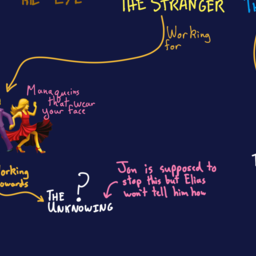 THE EYE
THE STRANGER
TH
Working
for
Manaqueins
that wear
your face
orking
owards
THE
UNKNOWING
?
Jon is supposed to
stop this but Elias
won't tell him how
T